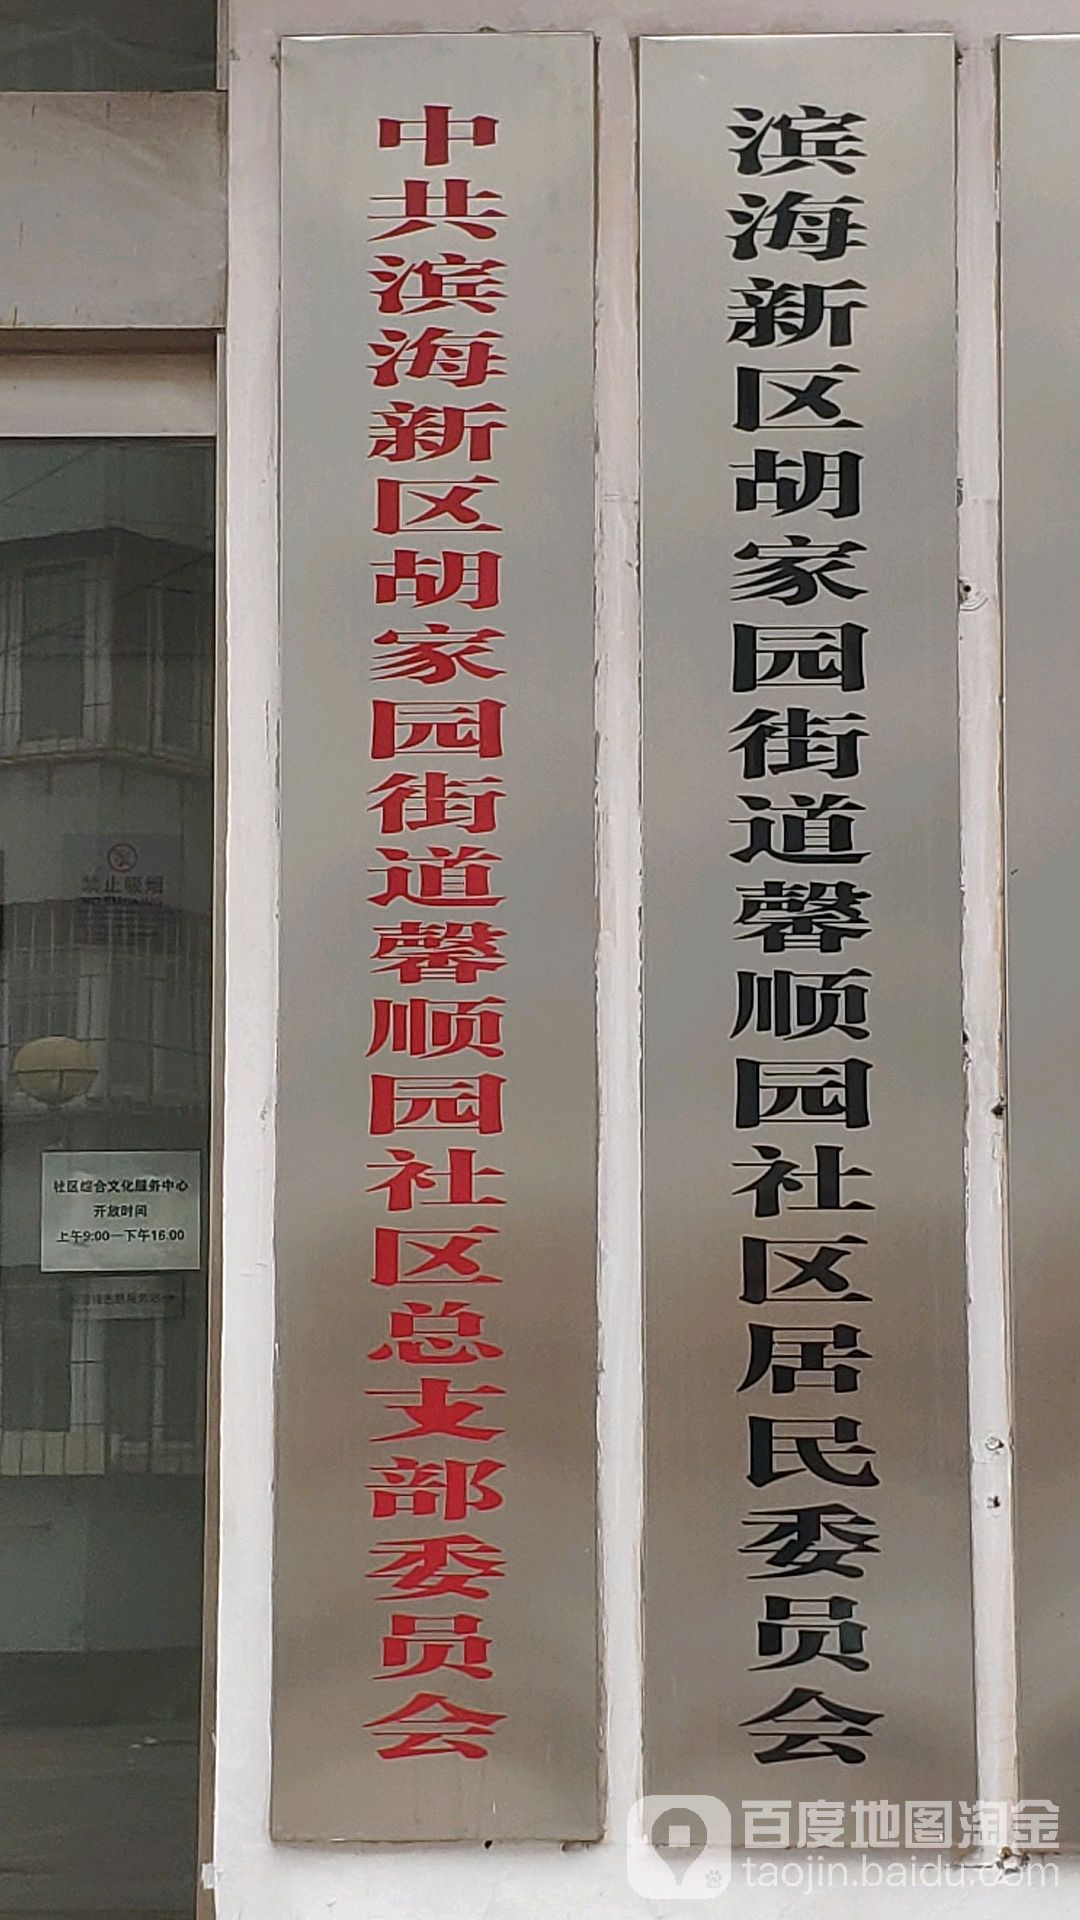 中共滨海新区胡家园街道馨顺园社区总支部委员会
滨海新区胡家园街道馨顺园社区居民委员会
禁止吸烟
NO SMOKING
社区综合文化服务中心
开放时间
上午9:00—下午16:00
百度地图淘金
taojin.baidu.com